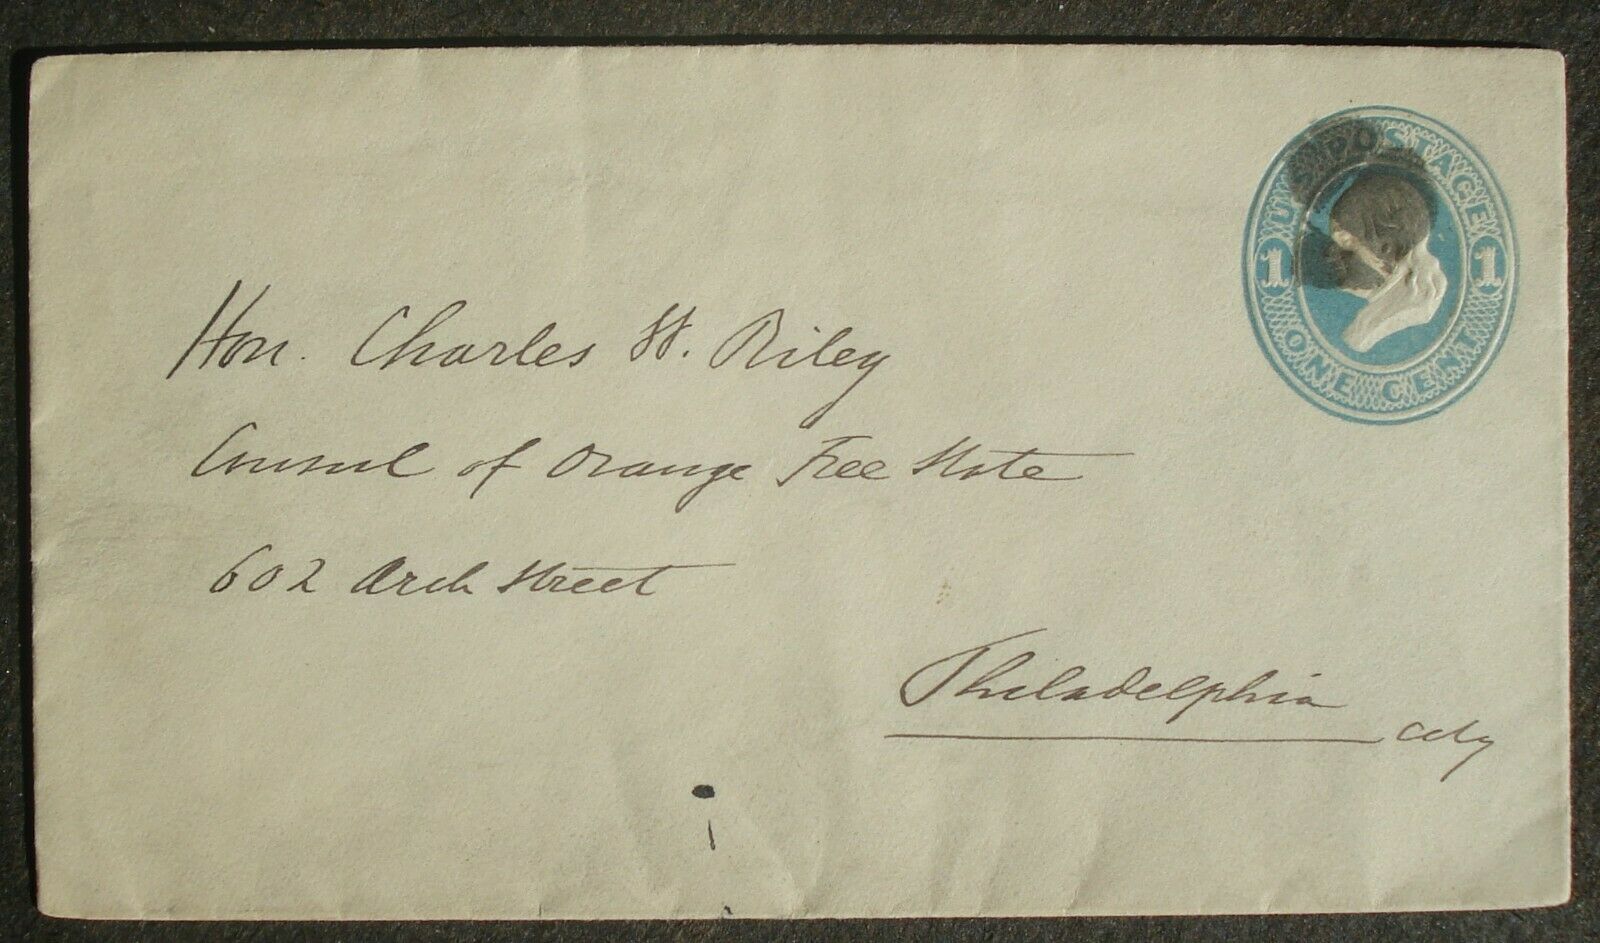 U.S. POSTAGE
1 1
ONE CENT
Hon. Charles W. Riley
Consul of Orange Free State
602 Arch Street
Philadelphia
City